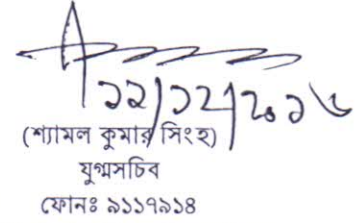 ১২/১২/২০১৬
(শ্যামল কুমার সিংহ)
যুগ্মসচিব
ফোনঃ ৯১১৭৯১৪